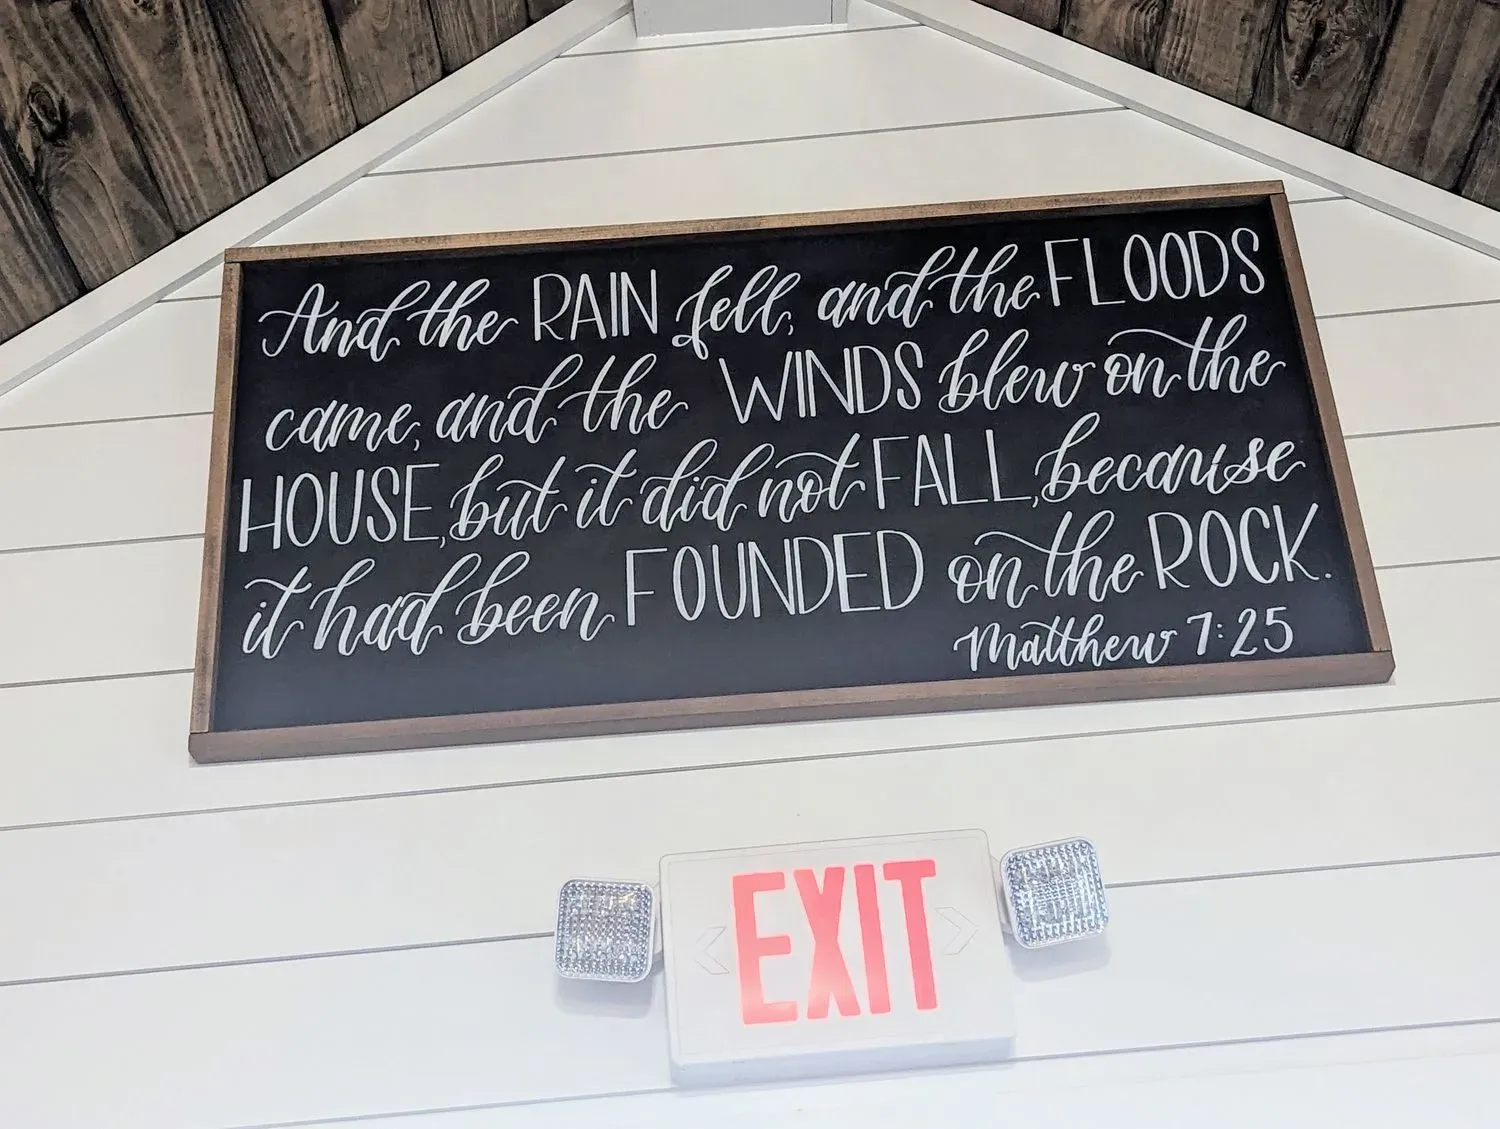 And the RAIN fell, and the FLOODS
came, and the WINDS blew on the
HOUSE, but it did not FALL, because
it had been FOUNDED on the ROCK.
Matthew 7:25
EXIT